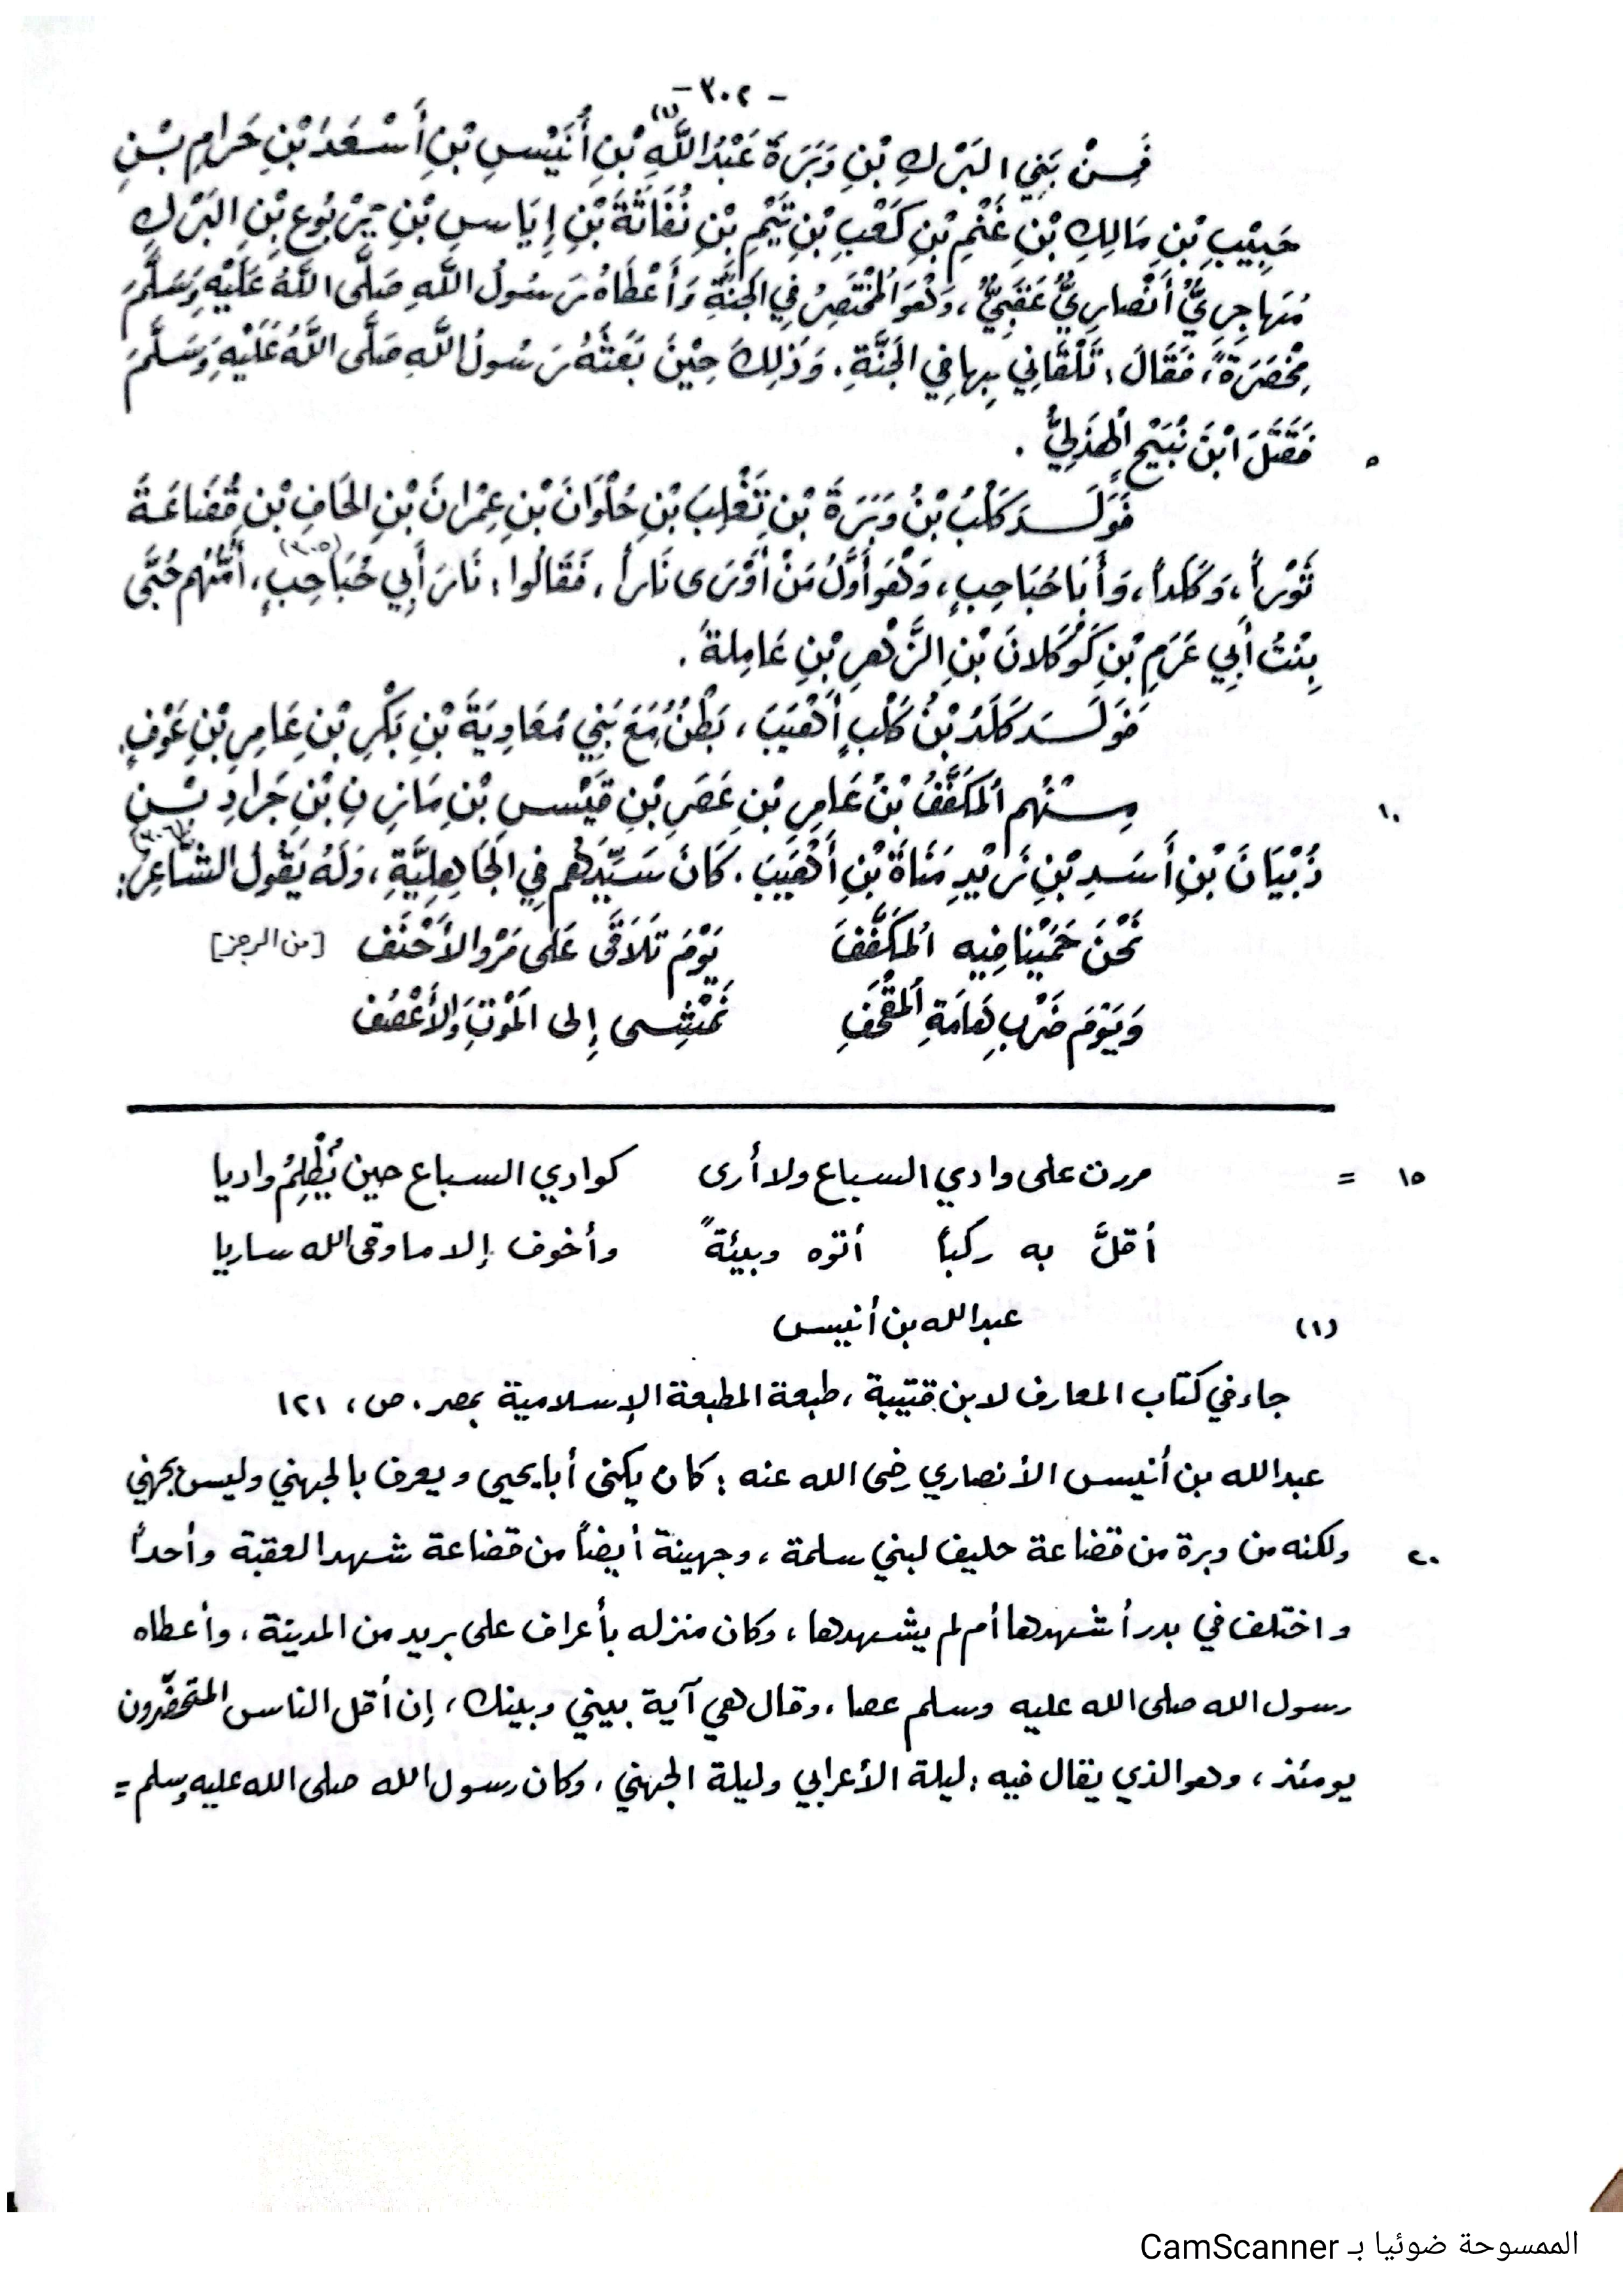 - ٣٠٢ -
فَمِنْ بَنِي البَرْكِ بْنِ وَبَرَةَ عَبْدُ اللَّهِ (١) بْنِ أُنَيْسِ بْنِ أَسْعَدَ بْنِ حَرامِ بْنِ
حَبِيْبِ بْنِ مَالِكِ بْنِ غَنْمِ بْنِ كَعْبِ بْنِ تَيْمِ بْنِ نُفَاثَةَ بْنِ إِيَاسِ بْنِ يَرْبُوعِ بْنِ البَرْكِ
مُهَاجِرِيٌّ أَنْصارِيٌّ عَقَبِيٌّ، وَهُوَ المُخْتَصِرُ فِي الجَنَّةِ وَأَعْطَاهُ رَسُولُ اللَّهِ صَلَّى اللَّهُ عَلَيْهِ وَسَلَّمَ
مِخْصَرَةً، فَقَالَ: تَلْقَانِي بِها فِي الجَنَّةِ. وَذَلِكَ حِيْنَ بَعَثَهُ رَسُولُ اللَّهِ صَلَّى اللَّهُ عَلَيْهِ وَسَلَّمَ
٥ فَقَتَلَ ابْنَ نُبَيْحٍ الهُذَلِيَّ .
فَوَلَدَ كَلْبُ بْنُ وَبَرَةَ بْنِ تَغْلِبَ بْنِ حُلْوَانَ بْنِ عِمْرانَ بْنِ الحَافِ بْنِ قُضَاعَةَ
ثَوْراً، وَكَلَداً، وَأَبَا حُبَاحِبٍ، وَهُوَ أَوَّلُ مَنْ أَوْرَى نَاراً، فَقَالُوا: نَارَ أَبِي حُبَاحِبٍ (٣٠٥)، أُمُّهُم حُبَّى
بِنْتُ أَبِي عَرَمِ بْنِ كَوْكَلانَ بْنِ الزَّهْرِ بْنِ عَامِلةَ .
فَوَلَدَ كَلَدُ بْنُ كَلْبٍ أَهْيَبَ، بَطْنٌ مَعَ بَنِي مُعَاوِيَةَ بْنِ بَكْرِ بْنِ عَامِرِ بْنِ عَوْفٍ.
١٠ مِنْهُم المُكَفَّفُ بْنُ عَامِرِ بْنِ عَصَرِ بْنِ قَيْسِ بْنِ مَازِنِ بْنِ جَرادِ بْنِ
ذُبْيَانَ بْنِ أَسَدِ بْنِ زَيْدِ مَنَاةَ بْنِ أَهْيَبَ. كَانَ سَيِّدَهُم فِي الجَاهِلِيَّةِ، وَلَهُ يَقُولُ الشَّاعِرُ (٣٠٦):
نَحْنُ حَمَيْنا فِيهِ المُكَفَّفَ يَوْمَ تَلَاقَى عَلَى مَرْو الأَحْنَف [من الرجز]
وَيَوْمَ ضَرْبِ هَامَةِ المُقْحَفِ نَمْشِي إِلى المَوْتِ وَالأَعْصُف
١٥ = مررت على وادي السباع ولا أرى كوادي السباع حين يُظْلِمُ واديا
أقلَّ به ركباً أتوه وبيئةً وأخوف إلا ما وقى الله ساريا
(١) عبدالله بن أنيس
جاء في كتاب المعارف لابن قتيبة، طبعة المطبعة الإسلامية بمصر. ص، ١٢١
عبدالله بن أنيس الأنصاري رضي الله عنه: كان يكنى أبا يحيى ويعرف بالجهني وليس بجهني
٢٠ ولكنه من وبرة من قضاعة حليف لبني سلمة، وجهينة أيضاً من قضاعة شهد العقبة وأحداً
واختلف في بدر أشهدها أم لم يشهدها، وكان منزله بأعراف على بريد من المدينة، وأعطاه
رسول الله صلى الله عليه وسلم عصا، وقال هي آية بيني وبينك، إن أقل الناس المتخصّرون
يومئذ، وهو الذي يقال فيه: ليلة الأعرابي وليلة الجهني، وكان رسول الله صلى الله عليه وسلم =
الممسوحة ضوئيا بـ CamScanner